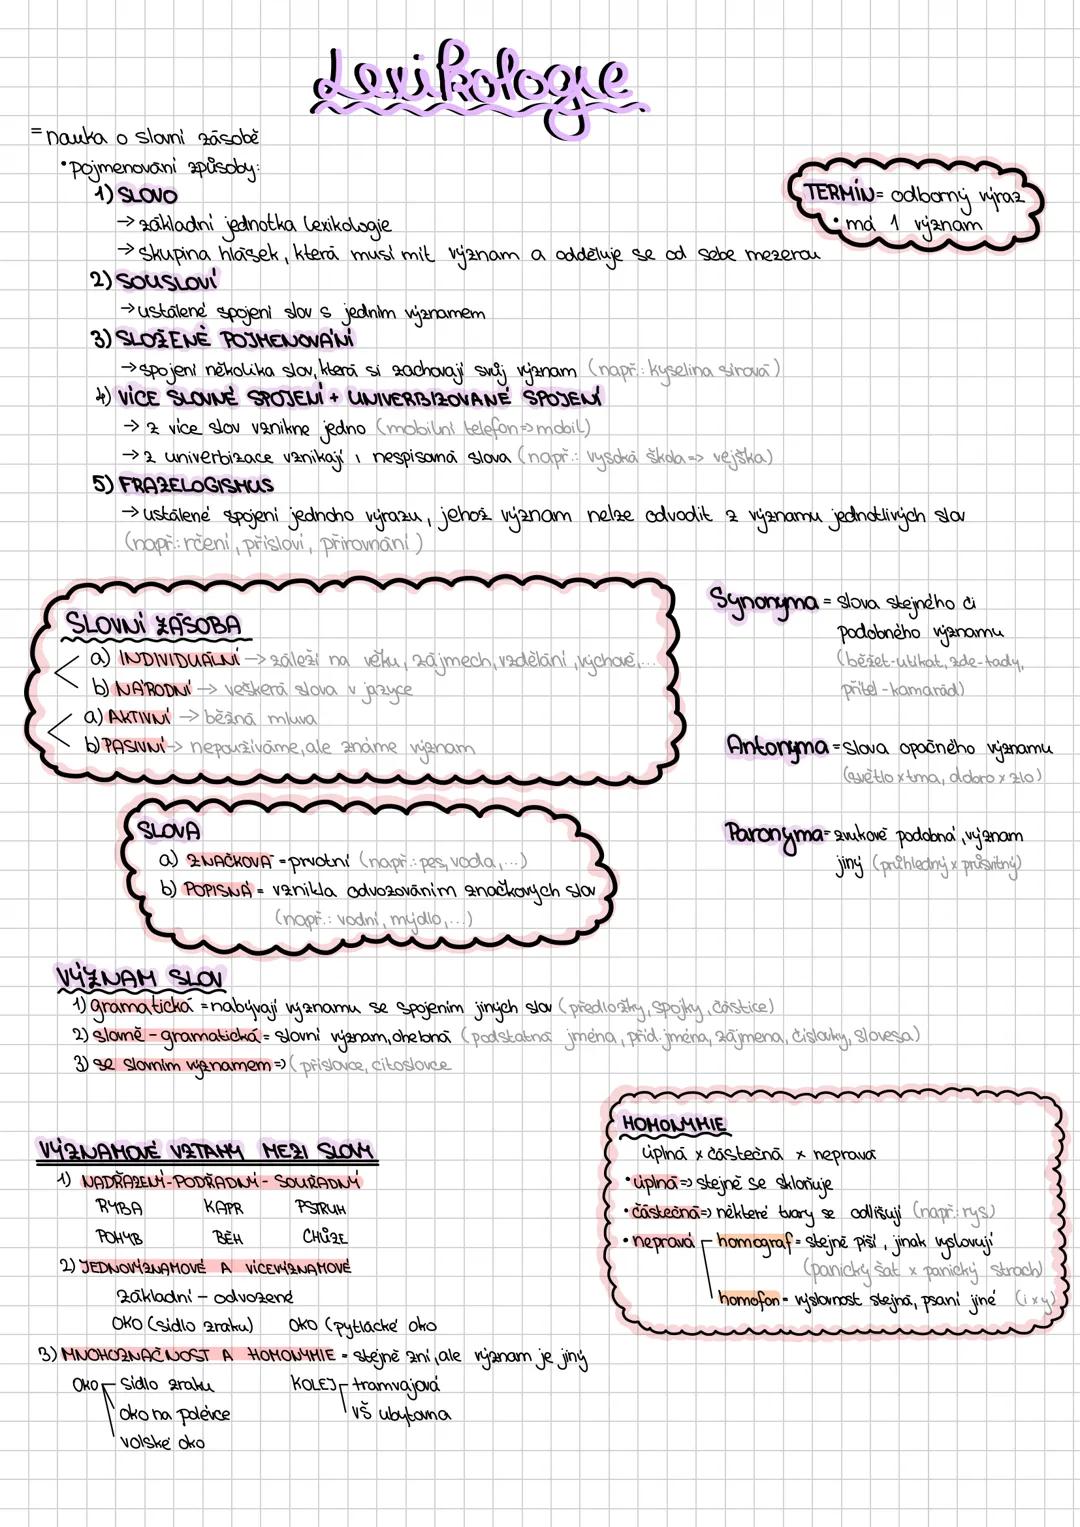 Lexikologie
= nauka o slovní zásobě
• pojmenování způsoby:
1) SLOVO
→ základní jednotka lexikologie
→ skupina hlásek, která musí mít význam a odděluje se od sebe mezerou
TERMÍN = odborný výraz
• má 1 význam
2) SOUSLOVÍ
→ ustálené spojení slov s jedním významem
3) SLOŽENÉ POJMENOVÁNÍ
→ spojení několika slov, která si zachovají svůj význam (např.: kyselina sírová)
4) VÍCE SLOVNÉ SPOJENÍ + UNIVERBIZOVANÉ SPOJENÍ
→ z více slov vznikne jedno (mobilní telefon => mobil)
→ z univerbizace vznikají i nespisovná slova (např.: vysoká škola => vejška)
5) FRAZELOGISMUS
→ ustálené spojení jednoho výrazu, jehož význam nelze odvodit z významu jednotlivých slov
(např.: rčení, přísloví, přirovnání)
SLOVNÍ ZÁSOBA
a) INDIVIDUÁLNÍ → záleží na věku, zájmech, vzdělání, výchově,...
b) NÁRODNÍ → veškerá slova v jazyce
a) AKTIVNÍ → běžná mluva
b) PASIVNÍ → nepoužíváme, ale známe význam
Synonyma = slova stejného či
podobného významu
(běžet-utíkat, zde-tady,
přítel-kamarád)
Antonyma = slova opačného významu
(světlo x tma, dobro x zlo)
Paronyma = zvukově podobná, význam
jiný (průhledný x průsvitný)
SLOVA
a) ZNAČKOVÁ = prvotní (např.: pes, voda,...)
b) POPISNÁ = vznikla odvozováním značkových slov
(např.: vodní, mýdlo,...)
VÝZNAM SLOV
1) gramatická = nabývají významu se spojením jiných slov (předložky, spojky, částice)
2) slovně - gramatická = slovní význam, ohebná (podstatná jména, příd. jména, zájmena, číslovky, slovesa)
3) se slovním významem => (příslovce, citoslovce
VÝZNAMOVÉ VZTAHY MEZI SLOVY
1) NADŘAZENÝ-PODŘADNÝ-SOUŘADNÝ
RYBA KAPR PSTRUH
POHYB BĚH CHŮZE
2) JEDNOVÝZNAMOVÉ A VÍCEVÝZNAMOVÉ
základní - odvozené
OKO (sídlo zraku) OKO (pytlácké oko
3) MNOHOZNAČNOST A HOMONYMIE = stejně zní, ale význam je jiný
OKO sídlo zraku KOLEJ tramvajová
oko na polévce VŠ ubytovna
volské oko
HOMONYMIE
úplná x částečná x nepravá
• úplná => stejně se skloňuje
• částečná => některé tvary se odlišují (např.: rys)
• nepravá homograf = stejně píší, jinak vyslovují
(panický šat x panický strach)
homofon = výslovnost stejná, psaní jiné (i x y)